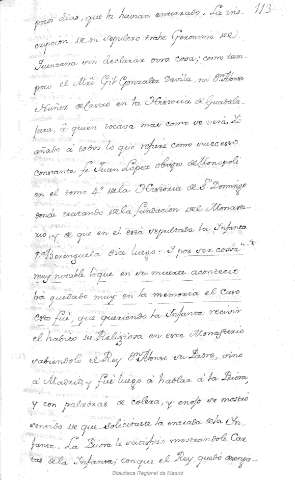 113
pocos dias, que la havian enterrado. La ins-
cripcion de su sepulcro trahe Geronimo de
Quintana sin declarar otra cosa; como tam-
poco el Mro Gil Gonzalez Davila, ni Dn Alonso
Nuñez de Castro en la Historia de Guadala-
jara, á quien tocava mas como se verá. Y
añado á todos lo que refiere como
Fr. Juan Lopez obispo de Monopoli
en el tomo 4º de la Historia de Sto Domingo
donde tratando de la fundacion del Monaste-
rio, y de que en él está sepultada la Infanta
Dª Berenguela dia luego: Y por ser cosa
muy notable lo que en su muerte acontecio
ha quedado muy en la memoria el caso
esto fué, que queriendo la Infanta recivir
el habito de Religiosa en este Monasterio
sabiendolo el Rey Dn Alonso su Padre, vino
á Madrid y fué luego á hablar á la Priora,
y con palabras de colera, y enojo se mostró
sentido de que solicitase la entrada de la In-
fanta. La Priora le satisfizo mostrandole Car-
tas de la Infanta; con que el Rey quedó
Biblioteca Regional de Madrid